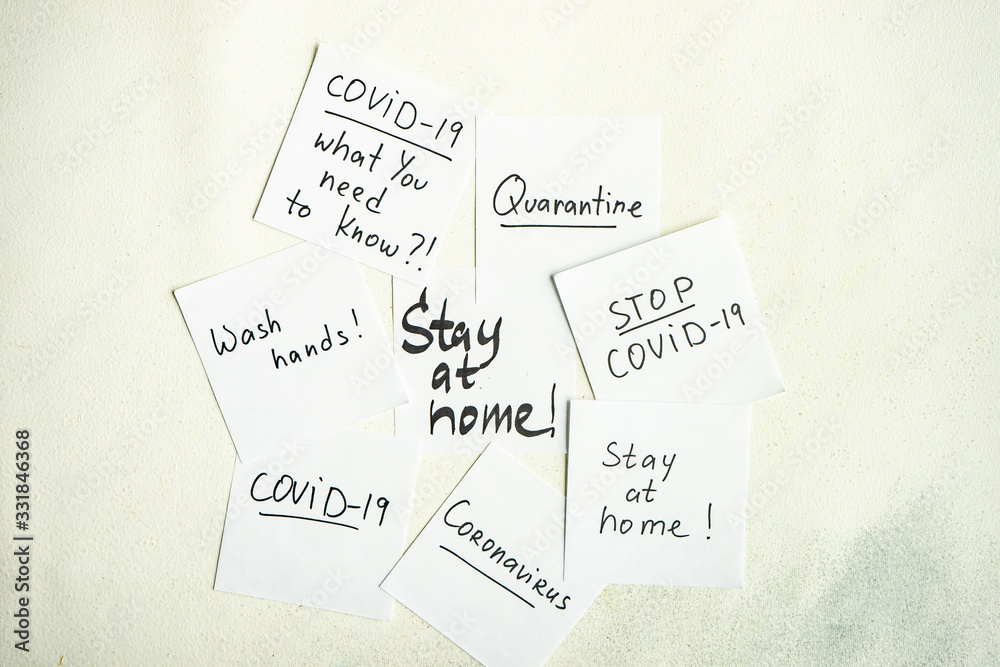 COViD-19
what You
need
to know?!
Quarantine
STOP
COViD-19
Wash
hands!
Stay
at
home!
COViD-19
CORONAVIRUS
Stay
at
home!
Adobe Stock | #331846368